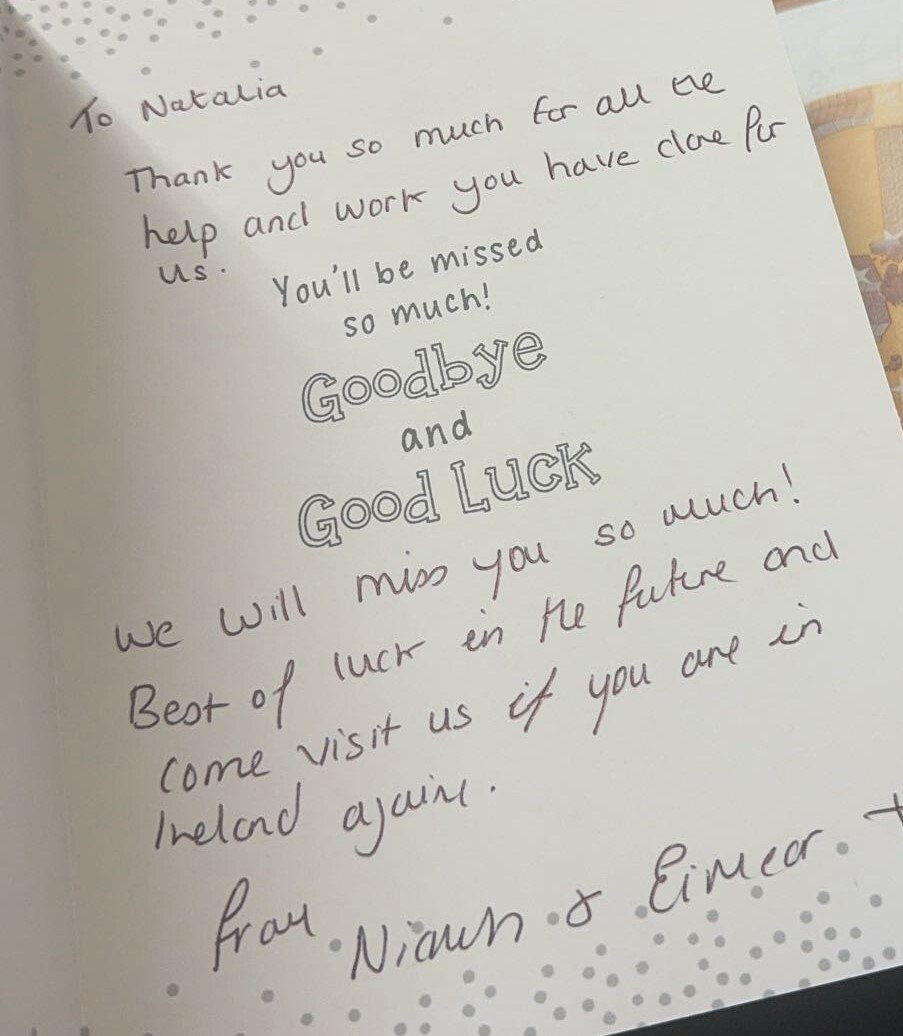 To Natalia
Thank you so much for all the
help and work you have done for
us.
You'll be missed
so much!
Goodbye
and
Good Luck
We will miss you so much!
Best of luck in the future and
come visit us if you are in
Ireland again.
from Niamh & Eimear. +